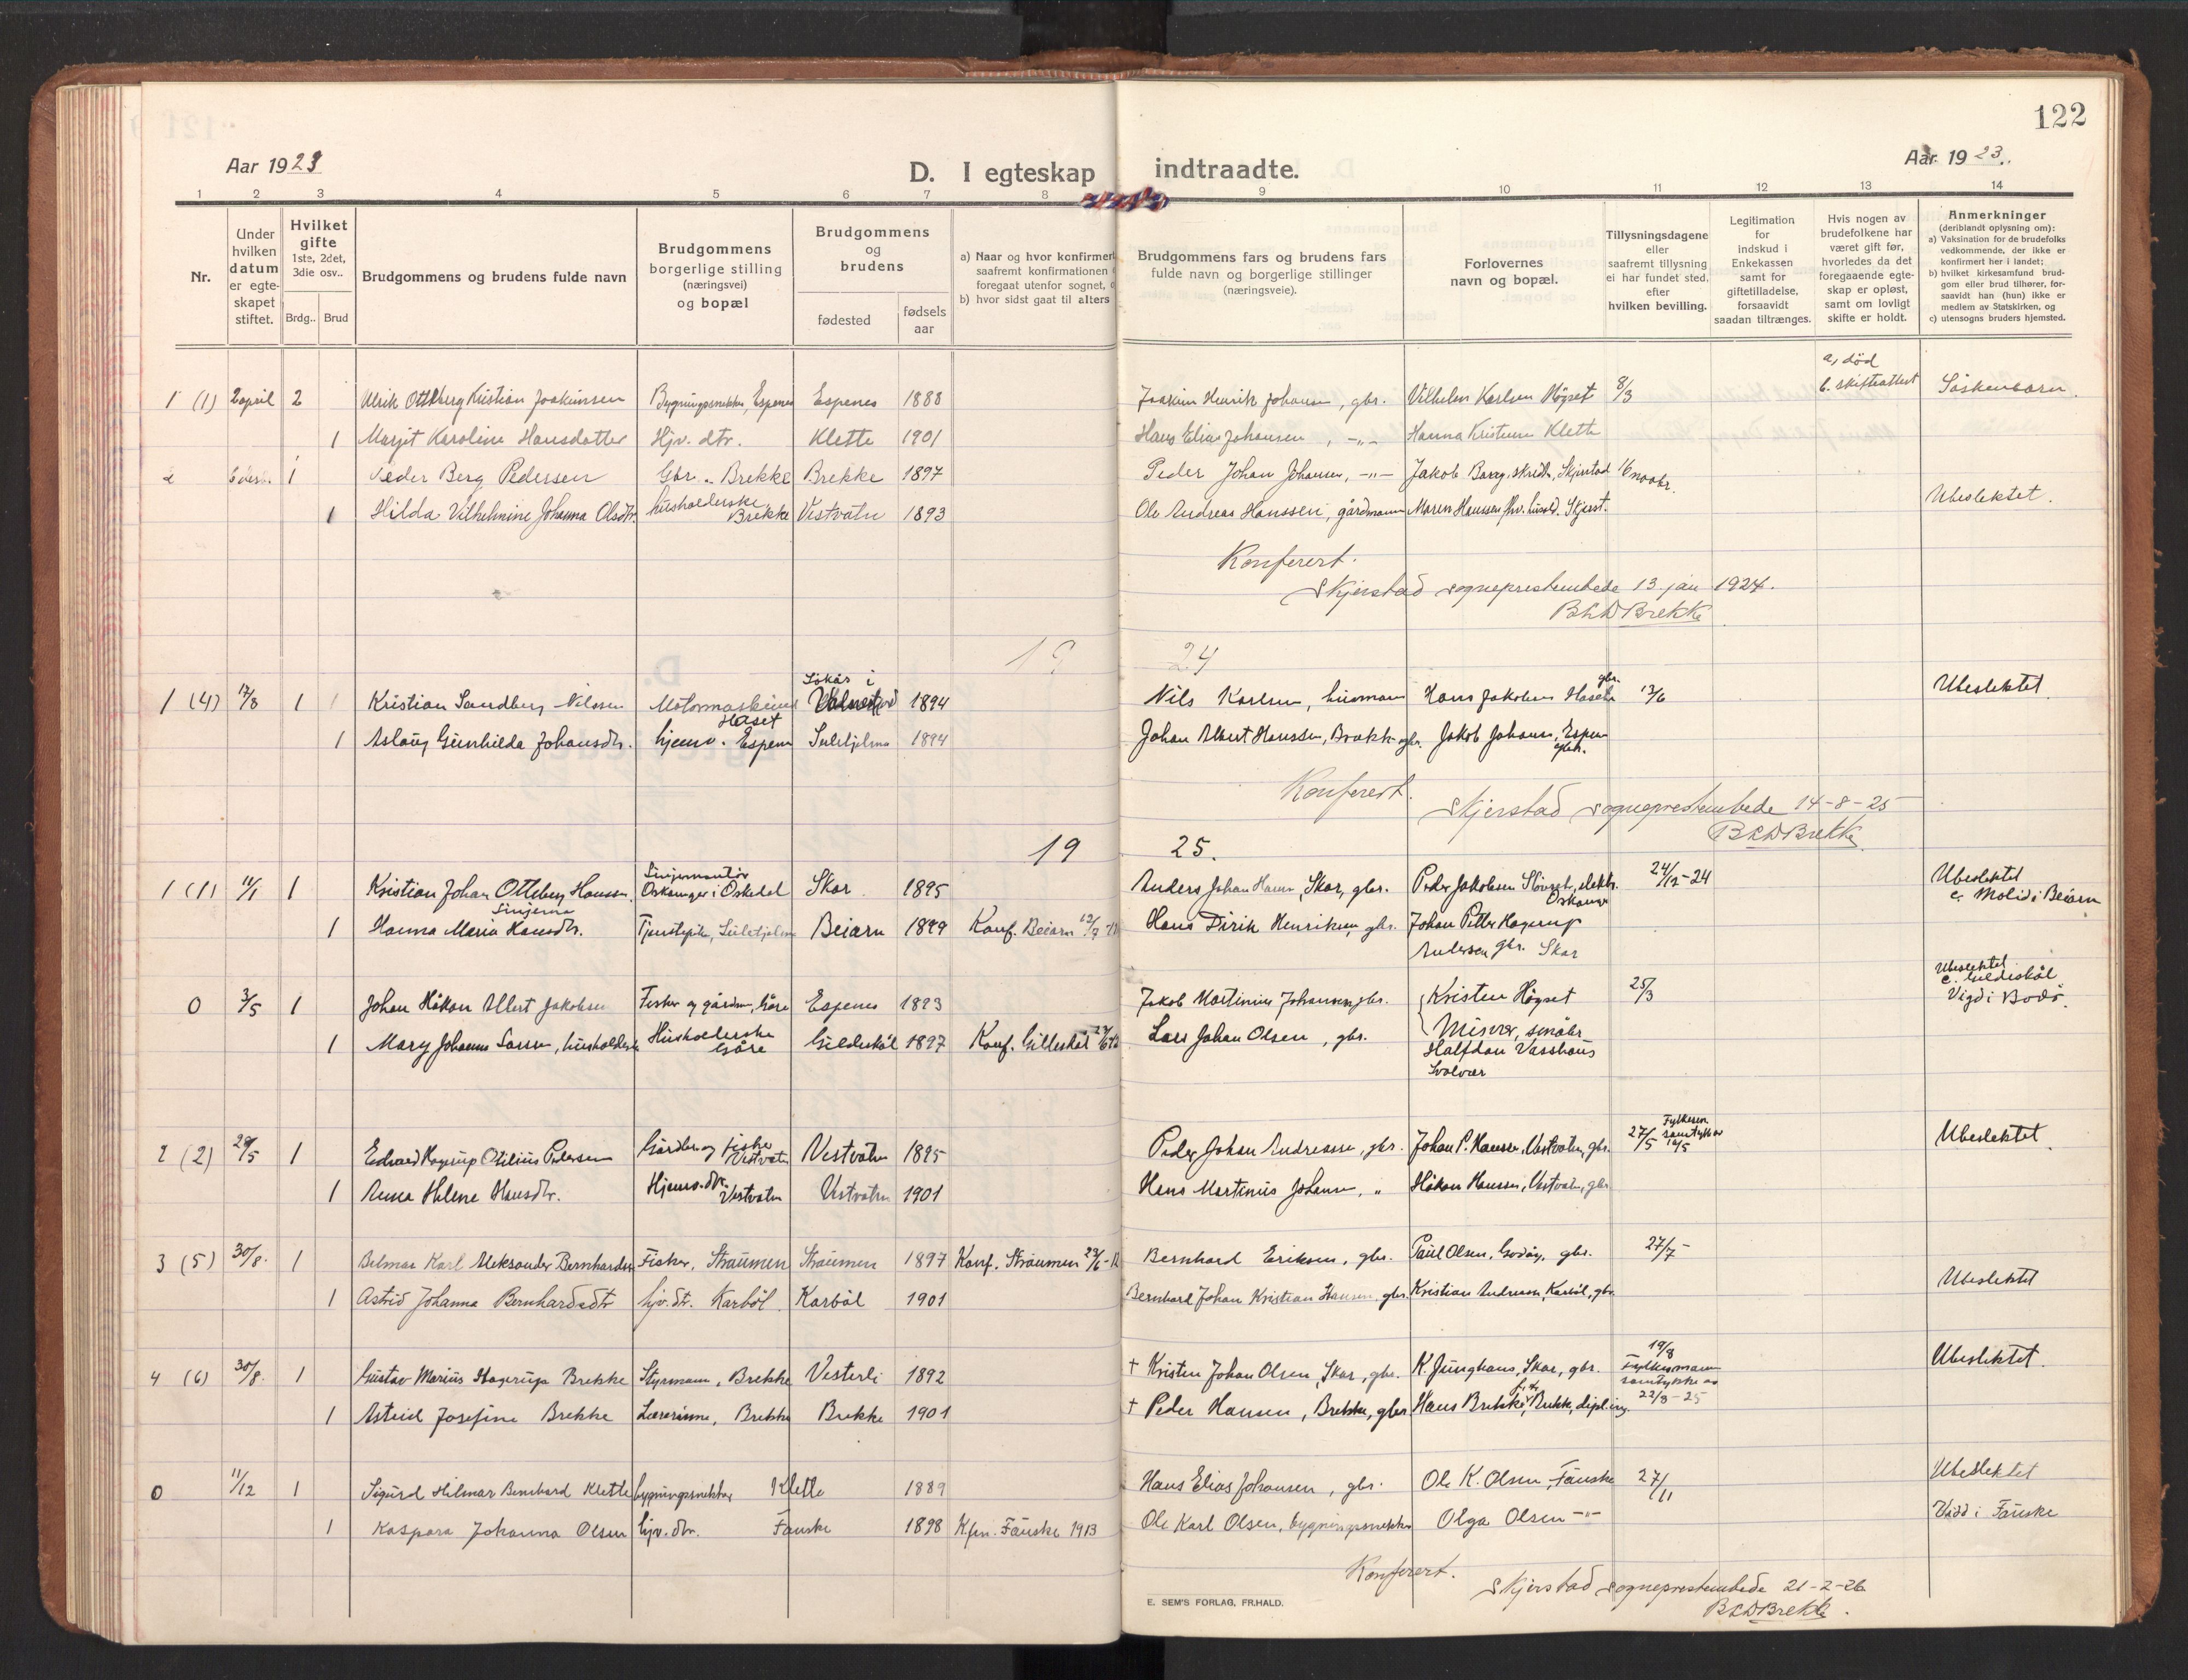 122
Aar 1923
D. I egteskap indtraadte.
Aar 1923.
1 2 3 4 5 6 7 8 9 10 11 12 13 14
Nr.
Under hvilken datum er egteskapet stiftet.
Hvilket gifte 1ste, 2det, 3die osv..
Brdg.. Brud
Brudgommens og brudens fulde navn
Brudgommens borgerlige stilling (næringsvei) og bopæl
Brudgommens og brudens
fødested
fødsels aar
a) Naar og hvor konfirmert
saafremt konfirmationen
foregaat utenfor sognet,
b) hvor sidst gaat til alters
Brudgommens fars og brudens fars fulde navn og borgerlige stillinger (næringsveie).
Forlovernes navn og bopæl.
Tillysningsdagene eller saafremt tillysning ei har fundet sted, efter hvilken bevilling.
Legitimation for indskud i Enkekassen samt for giftetilladelse, forsaavidt saadan tiltrænges.
Hvis nogen av brudefolkene har været gift før, hvorledes da det foregaaende egteskap er opløst, samt om lovligt skifte er holdt.
Anmerkninger (deriblandt oplysning om):
a) Vaksination for de brudefolks vedkommende, der ikke er konfirmert her i landet;
b) hvilket kirkesamfund brudgom eller brud tilhører, forsaavidt han (hun) ikke er medlem av Statskirken, og
c) utensogns bruders hjemsted.
1 (1) 2 april 2 Ulrik Ottberg Kristian Joakimsen Bygningssnekker, Espenes Espenes 1888 Joakim Henrik Johansen, gbr. Vilhelm Karlsen Högset 8/3 a, død b. skifteattest Söskenbarn
1 Marjit Karoline Hansdatter Hjv. dtr. Klette 1901 Hans Elias Johansen, -"- Hanna Kristensen Klette
2 1 Peder Berg Pedersen Gbr. Brekke Brekke 1897 Peder Johan Johansen, -"- Jakob Barg, Skjerstad 16 novbr.
1 Hilda Vilhelmine Johanna Olsdtr. husholderske Brekke Vestvatn 1893 Ole Andreas Hanssen, gårdmann Maren Hanssen Skjerst. Ubeslektet.
Konferert.
Skjerstad sogneprestembede 13. jan 1924.
BLDBrekke
19 24
1 (4) 17/8 1 Kristian Sandberg Nilssen Motormaskinist Haset Lökås i Valnesfjord 1894 Nils Karlsen, husmann Hans Jakobsen Haset gbr. 13/6 Ubeslektet.
1 Aslaug Gunhilda Johansdtr. hjemv. Espenes Sulitjelma 1894 Johan Albert Hanssen, Brekke gbr. Jakob Johansen, Espenes gbr.
Konferert.
Skjerstad sogneprestembede 14-8-25
BLDBrekke
19 25.
1 (1) 11/1 1 Kristian Johan Otteberg Hanssen Linjemontör Oskanger i Oskedal Skar 1895 Anders Johan Hansen, Skar, gbr. Peder Jakobsen, elektr. 24/12-24 Ubeslektet
c. Molid i Beiarn
1 Hanna Maria Hansdtr. Tjenstepike, Sulitjelma Beiarn 1899 Konf. Beiarn Hans Dirik Henriksen, gbr. Johan Petter Hagerup Andersen gbr. Skar
0 3/5 1 Johan Håkon Albert Jakobsen Fisker og gårdm. Espenes 1893 Jakob Martinius Johansen, gbr. Kristen Högset 25/3 Ubeslektet
c. Gildeskål
Vigd i Bodö.
Misvær, småbr.
1 Mary Johanna Larsen, husholderske Husholderske Gildeskål 1897 Konf. Gildeskål Lars Johan Olsen, gbr. Halfdan Vasshaus Svolvær
2 (2) 29/5 1 Edvard Hagerup Otilius Pedersen Gårdbr. og fisker Vestvatn Vestvatn 1895 Peder Johan Andreassen, gbr. Johan P. Hanssen, Vestvatn, gbr. 27/5 Fylkesm. samtykke 16/5 Ubeslektet.
1 Anna Helene Hansdtr. Hjemv. dtr. Vestvatn Vestvatn 1901 Hans Martinus Johansen, " Håkon Hanssen, Vestvatn, gbr.
3 (5) 30/8. 1 Belmar Karl Aleksander Bernhardsen Fisker, Straumen Straumen 1897 Konf. Straumen 23/6-12 Bernhard Eriksen, gbr. Paul Olsen, Godöy, gbr. 27/7-
1 Astrid Johanna Bernhardsdtr hjv. dtr. Karböl Karböl 1901 Bernhard Johan Kristian Hansen, gbr. Kristian Andreasen, Karböl, gbr. Ubeslektet
4 (6) 30/8. 1 Gustav Marius Hagerup Brekke Styrmann, Brekke Vesterli 1892 † Kristen Johan Olsen, Skar, gbr. K. Junghans, Skar, gbr. 19/8 Fylkesmann samtykke av 22/8-25 Ubeslektet.
1 Astrid Josefine Brekke Lærerinne, Brekke Brekke 1901 † Peder Hansen, Brekke, gbr Hans Brekke, Brekke, dipl.ing.
0 11/12 1 Sigurd Hilmar Bernhard Klette bygningssnekker Klette 1889 Hans Elias Johansen, gbr. Ole K. Olsen, Fauske 27/11 Ubeslektet
1 Kaspara Johanna Olsen hjv. dtr. Fauske 1898 Kfm. Fauske 1913 Ole Karl Olsen, bygningssnekker Olga Olsen -"- Vidd i Fauske
Konferert.
Skjerstad sogneprestembede 21-2-26
BLDBrekke.
E. SEM'S FORLAG, FR.HALD.